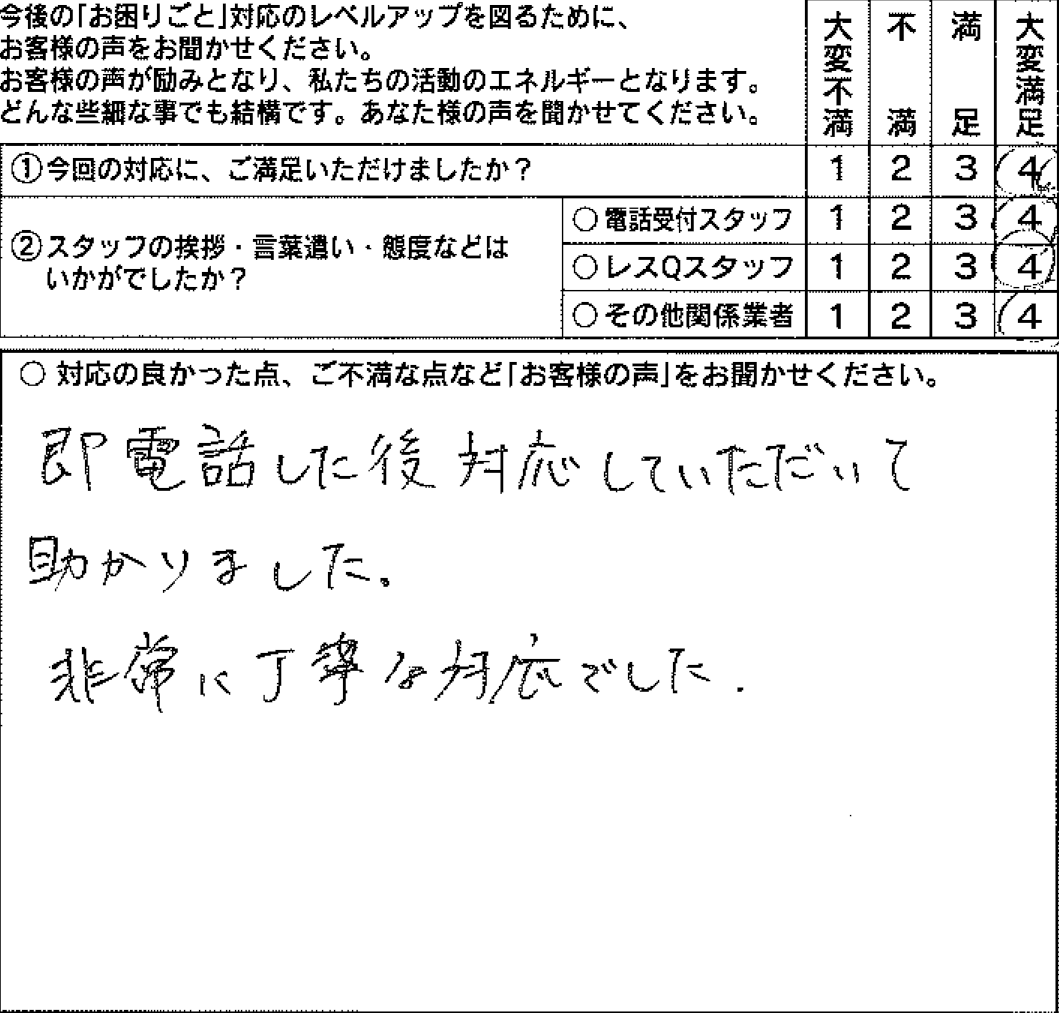 今後の「お困りごと」対応のレベルアップを図るために、
お客様の声をお聞かせください。
お客様の声が励みとなり、私たちの活動のエネルギーとなります。
どんな些細な事でも結構です。あなた様の声を聞かせてください。
大変不満 不満 満足 大変満足
①今回の対応に、ご満足いただけましたか？ 1 2 3 4
②スタッフの挨拶・言葉遣い・態度などは
いかがでしたか？
○電話受付スタッフ 1 2 3 4
○レスQスタッフ 1 2 3 4
○その他関係業者 1 2 3 4
○ 対応の良かった点、ご不満な点など「お客様の声」をお聞かせください。
即電話した後対応していただいて
助かりました。
非常に丁寧な対応でした.